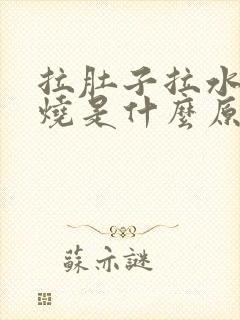 拉肚子拉水
燒是什麼原
蘇亦謎